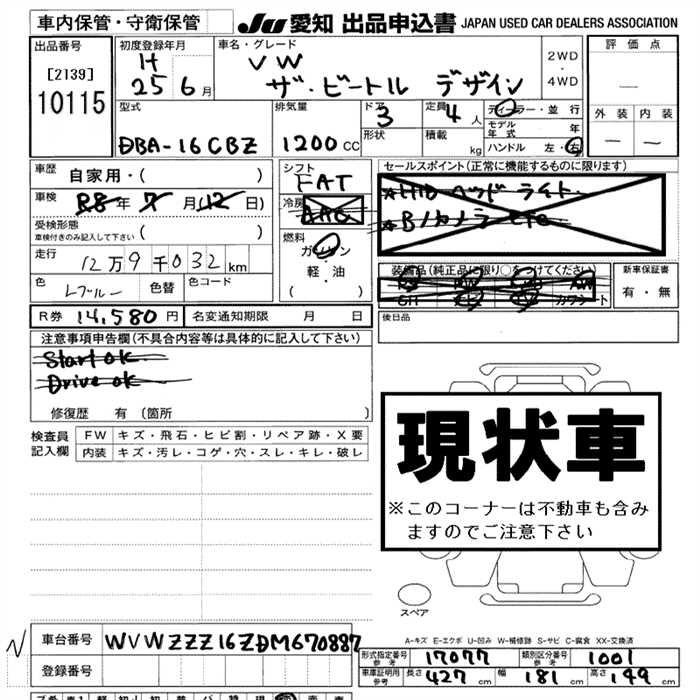 車内保管・守衛保管
JU 愛知 出品申込書 JAPAN USED CAR DEALERS ASSOCIATION
出品番号
[2139]
10115
初度登録年月
H
25 6月
車名・グレード
VW
ザ・ビートル デザイン
2WD
・
4WD
評価点
—
外装 内装
— —
型式
DBA-16CBZ
排気量
1200CC
ドア
3
形状
定員
4人
積載
kg
ディーラー・並行
モデル年式 年
ハンドル 左・右
車歴
自家用・( )
車検 R8年 7月12日)
受検形態
車検付きのみ記入して下さい ( )
走行
12万9千032km
色 レブルー 色替 色コード
シフト
FAT
冷房
AAC
燃料
ガソリン
・
軽・油
( )
セールスポイント(正常に機能するものに限ります)
☆HID ヘッドライト
☆Bノカメラ etc
装備品(純正品に限り○をつけてください)
SR PW AW
カワシート
新車保証書
有・無
R券 14,580円 名変通知期限 月 日
後日品
注意事項申告欄(不具合内容等は具体的に記入して下さい)
Start ok
Drive ok
修復歴 有(箇所 )
検査員
記入欄
FW キズ・飛石・ヒビ割・リペア跡・X要
内装 キズ・汚レ・コゲ・穴・スレ・キレ・破レ
現状車
※このコーナーは不動車も含み
ますのでご注意下さい
スペア
A-キズ E-エクボ U-凹み W-補修跡 S-サビ C-腐食 XX-交換済
N
車台番号 WVWZZZ16ZDM670887
登録番号
形式指定番号 参考 17077 類別区分番号 参考 1001
車庫証明用 参考 長さ 427cm 幅 181cm 高さ 149cm